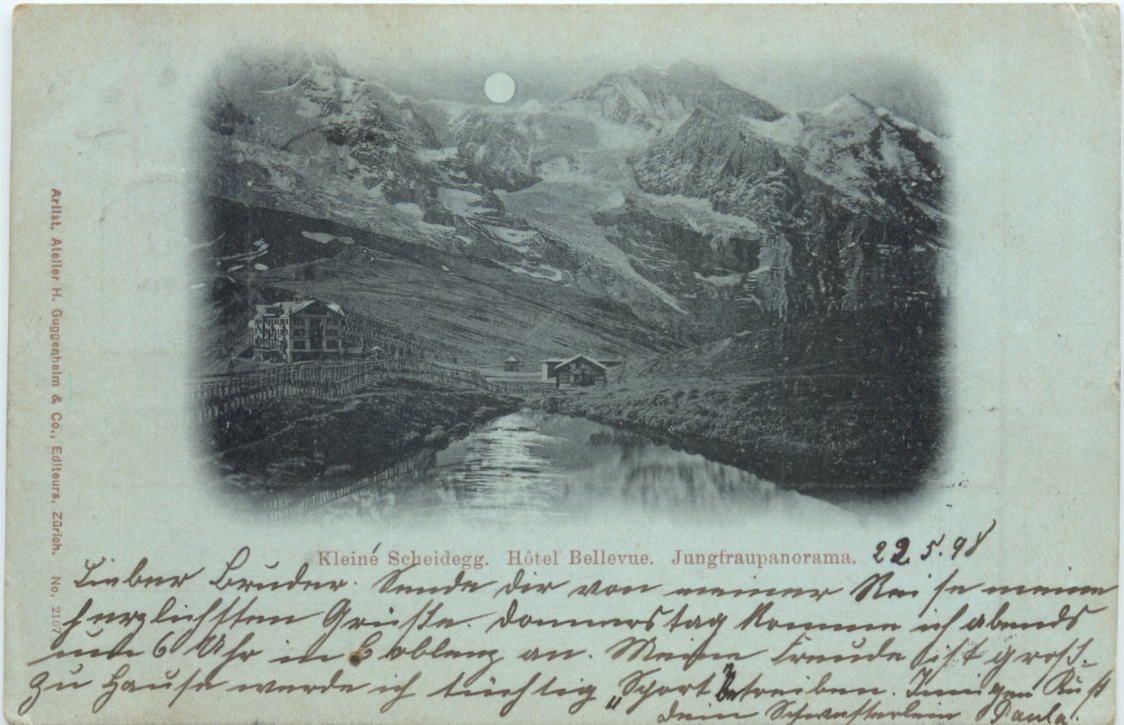 Artist. Atelier H. Guggenheim & Co., Editeurs, Zürich. No. 2107
Kleine Scheidegg. Hôtel Bellevue. Jungfraupanorama.
22.5.98
Lieber Bruder. Sende dir von meiner Reise meine
herzlichsten Grüße. Donnerstag komme ich abends
um 6 Uhr in Coblenz an. Meine Freude ist groß.
Zu Hause werde ich tüchtig „Sport" betreiben. Innigen Kuß
dein Schwesterlein Paula.